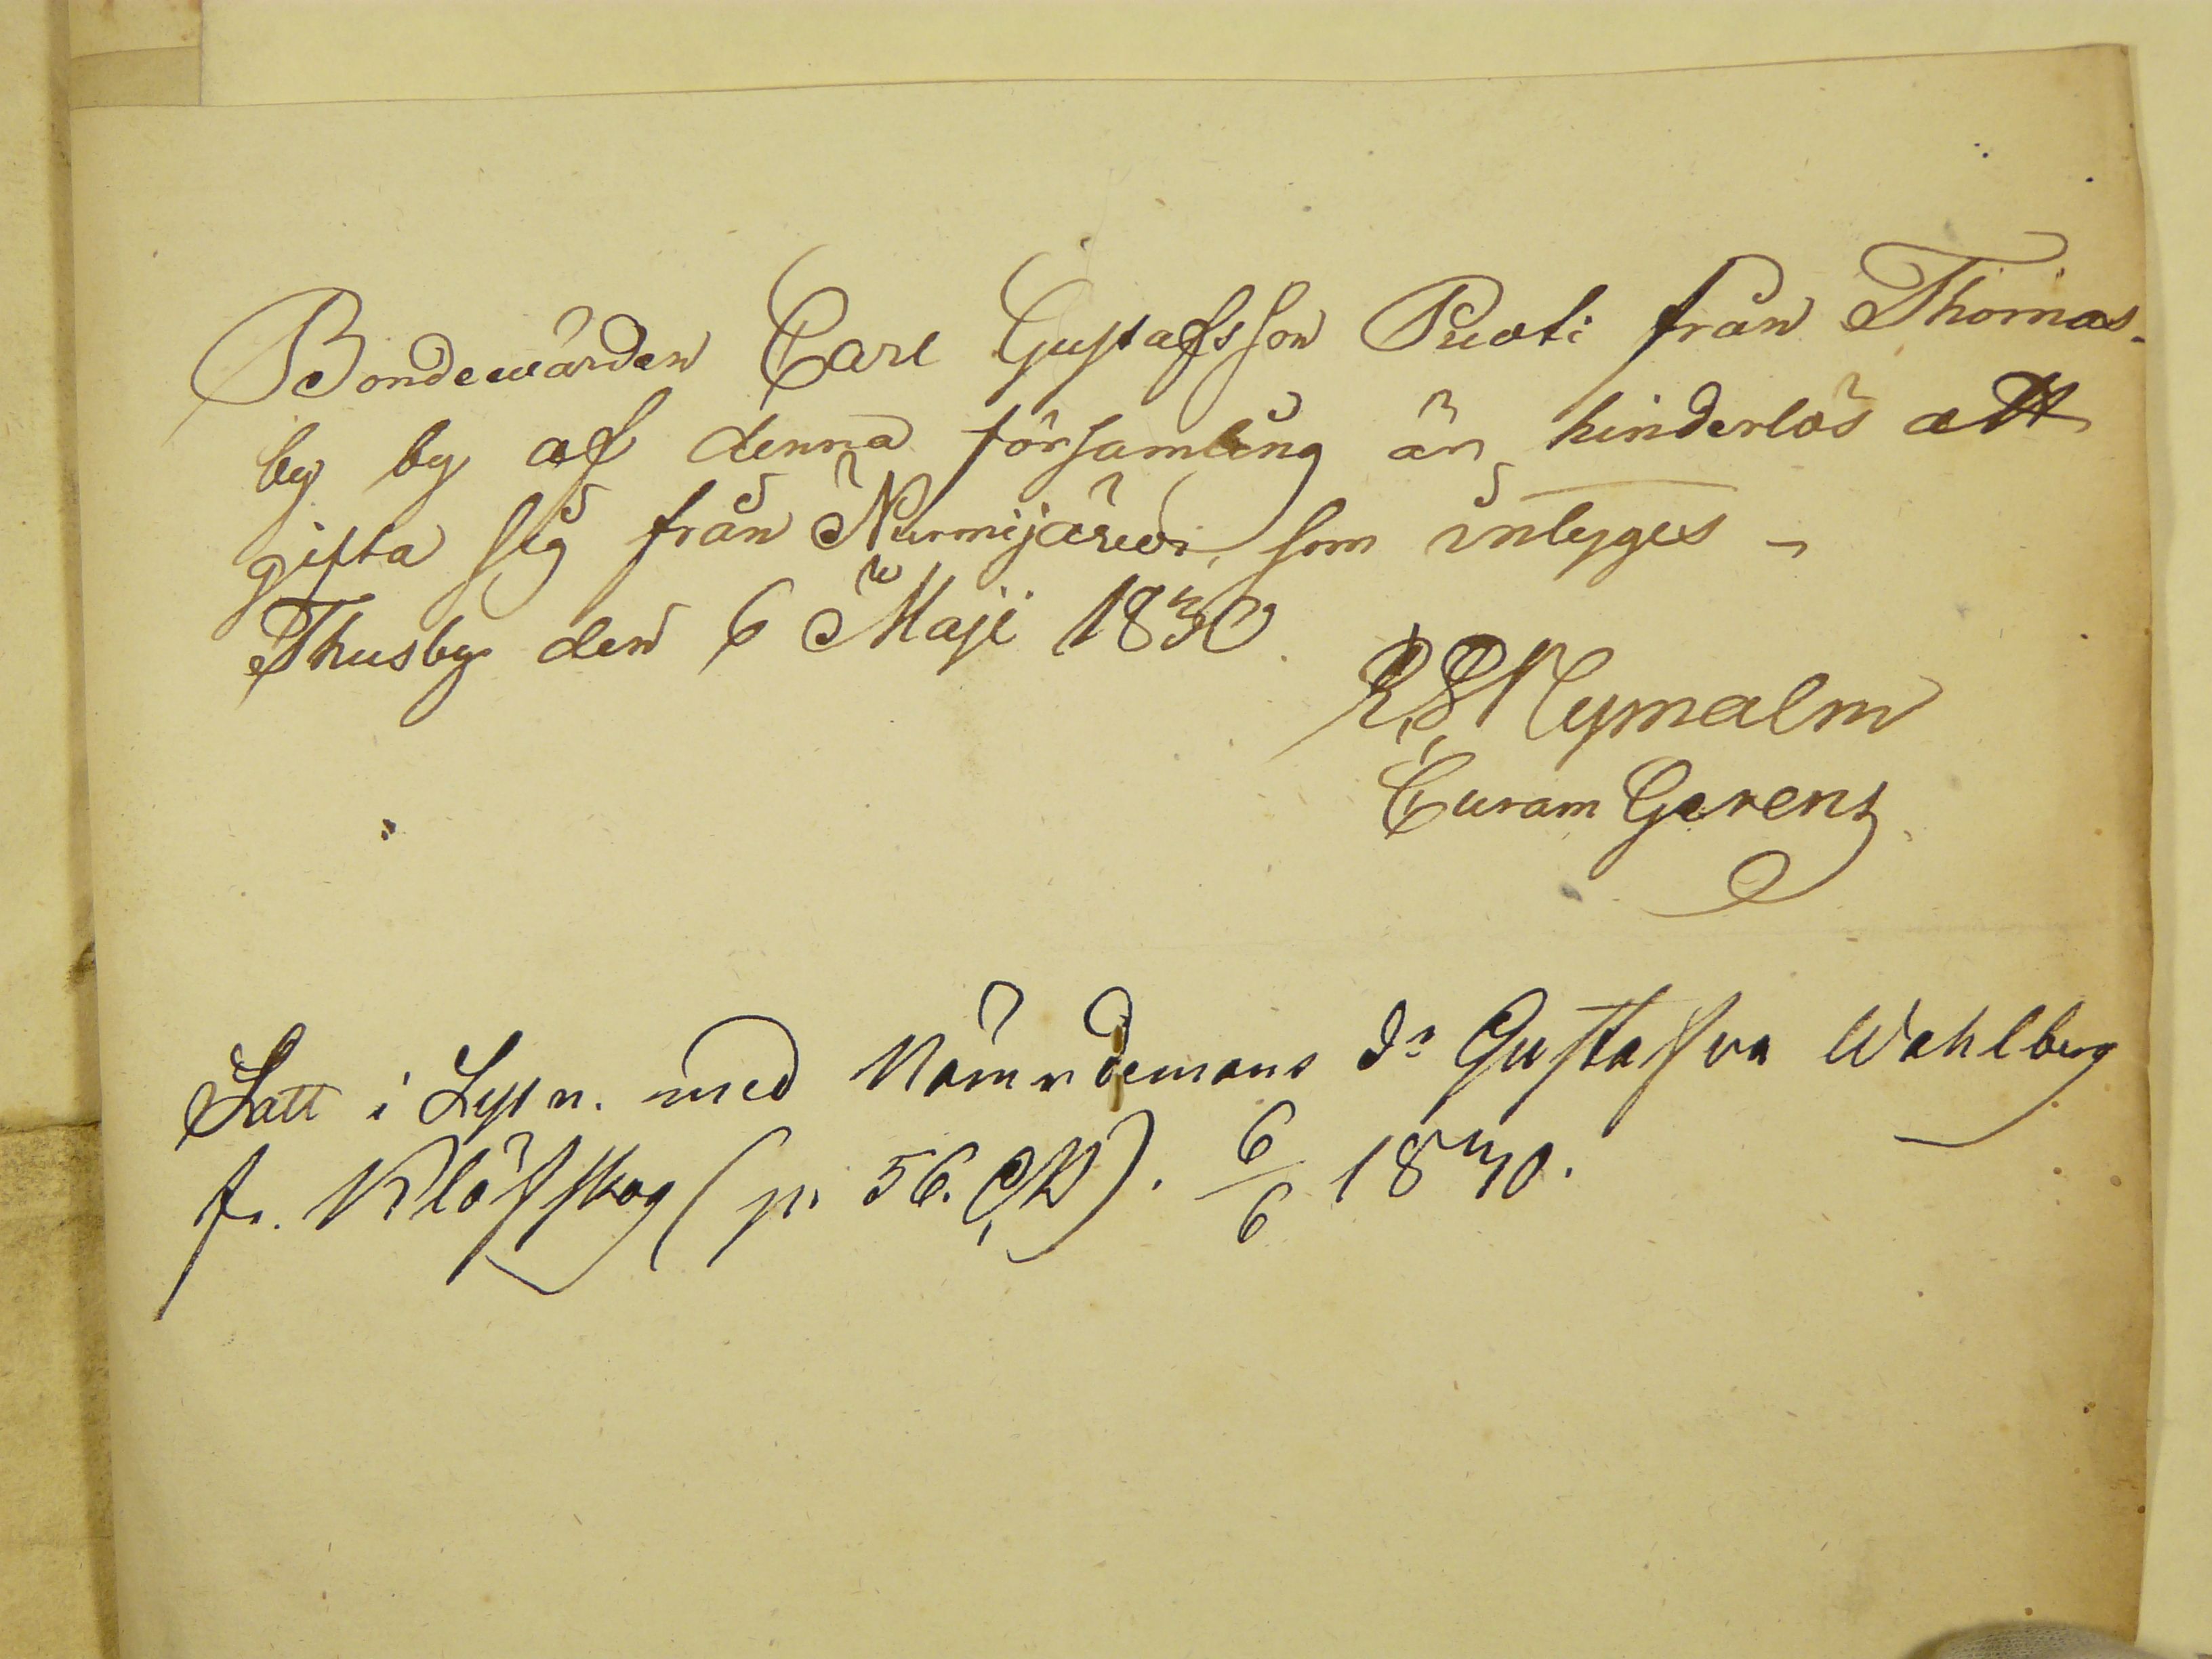 Bondewärden Carl Gustafsson Puoti från Thomas-
by by af denna församling är hinderlös att
gifta sig från Nurmijärvi, som intyges –
Thusby den 6 Maji 1830.
Nymalm
Curam Gerens
i Lysn. med Nämndemans Dr Gustafva Wahlberg
fr. Klöfskog (p. 56. ). 6/6 1830.